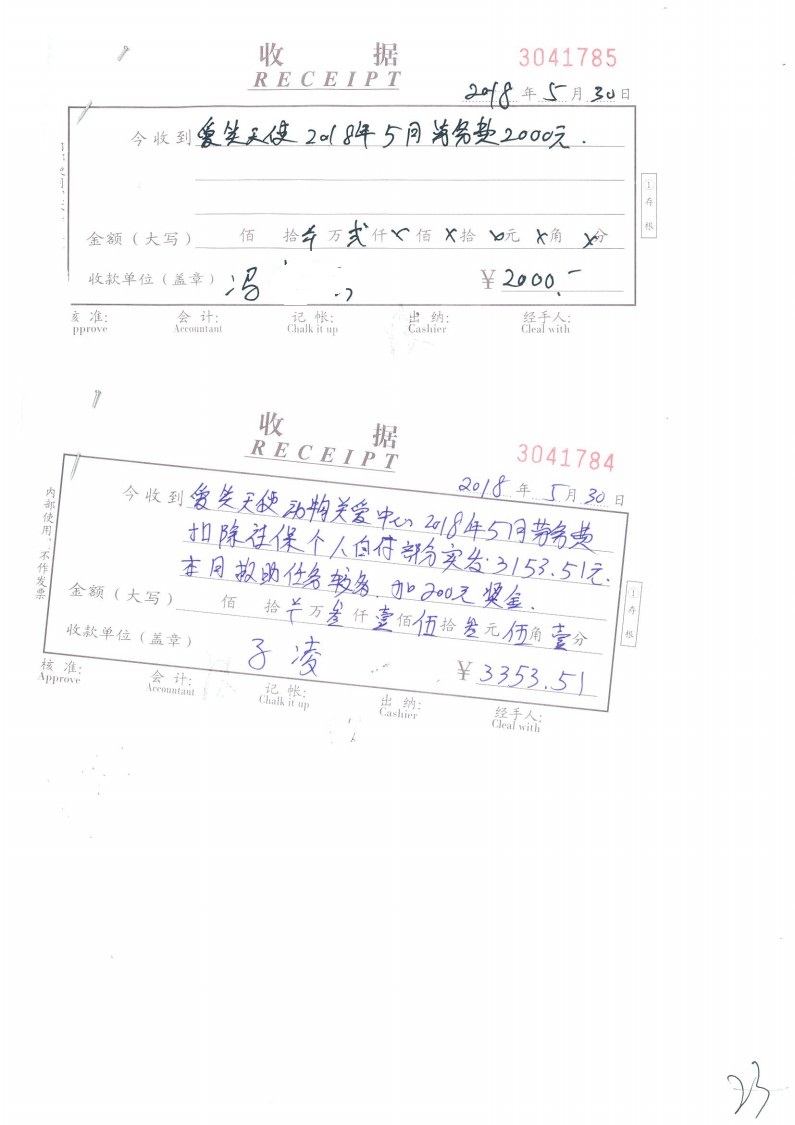 收 据
RECEIPT
3041785
2018 年 5 月 30 日
今收到 爱生天使 2018年 5月 劳务款 2000元.
① 存 根
金额（大写） 佰 拾 万 贰 仟 × 佰 × 拾 元 × 角 × 分
收款单位（盖章） 冯
¥ 2000.-
核 准: 会 计: 记 帐: 出 纳: 经手人:
pprove Accountant Chalk it up Cashier Cleal with
收 据
RECEIPT
3041784
2018 年 5 月 30 日
内部使用，不作发票
今收到 爱生天使动物关爱中心 2018年5月劳务费
扣除社保个人自付部分实发:3153.51元.
本月救助任务较多.加200元奖金.
① 存 根
金额（大写） 佰 拾 万 叁 仟 壹 佰 伍 拾 叁 元 伍 角 壹 分
收款单位（盖章） 子凌
¥ 3353.51
核 准: 会 计: 记 帐: 出 纳: 经手人:
Approve Accountant Chalk it up Cashier Cleal with
23